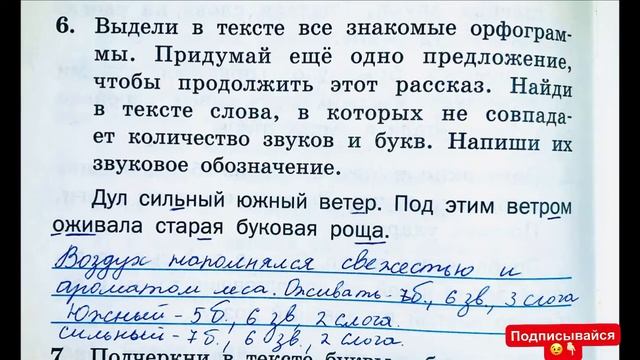 6. Выдели в тексте все знакомые орфограм-
мы. Придумай ещё одно предложение,
чтобы продолжить этот рассказ. Найди
в тексте слова, в которых не совпада-
ет количество звуков и букв. Напиши их
звуковое обозначение.
Дул сильный южный ветер. Под этим ветром
оживала старая буковая роща.
Воздух наполнялся свежестью и
ароматом леса. Оживать - 7б., 6 зв., 3 слога
Южный - 5 б., 6 зв, 2 слога.
сильный - 7 б., 6 зв., 2 слога.
Подписывайся
7. Подчеркни в тексте буквы